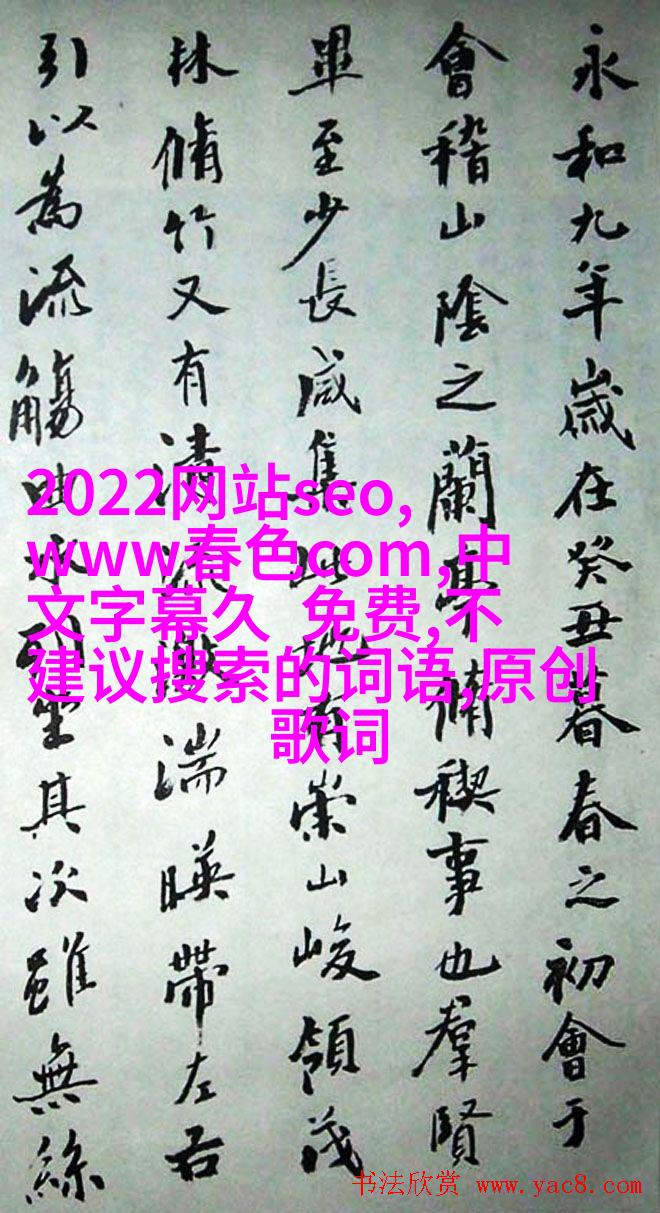 永和九年歲在癸丑暮春之初會于
會稽山陰之蘭亭脩禊事也羣賢
畢至少長咸集此地有崇山峻領茂
林脩竹又有清流激湍暎帶左右
引以為流觴曲水列坐其次雖無絲
2022网站seo,
www春色com,中
文字幕久 免费,不
建议搜索的词语,原创
歌词
书法欣赏 www.yac8.com